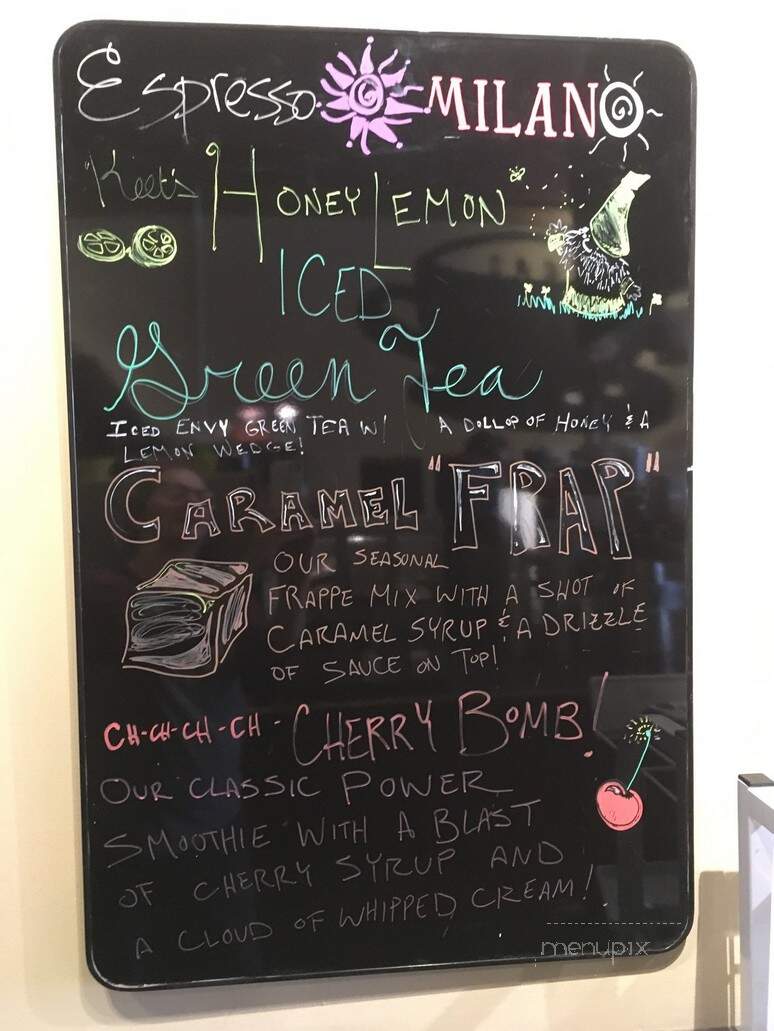 Espresso MILANO
"Keet's HONEY LEMON"
ICED
Green Tea
ICED ENVY GREEN TEA W/ A DOLLOP OF HONEY & A
LEMON WEDGE!
CARAMEL "FRAP"
OUR SEASONAL
FRAPPE MIX WITH A SHOT OF
CARAMEL SYRUP & A DRIZZLE
OF SAUCE ON TOP!
CH-CH-CH-CH-CHERRY BOMB!
OUR CLASSIC POWER
SMOOTHIE WITH A BLAST
OF CHERRY SYRUP AND
A CLOUD OF WHIPPED CREAM!
menupix